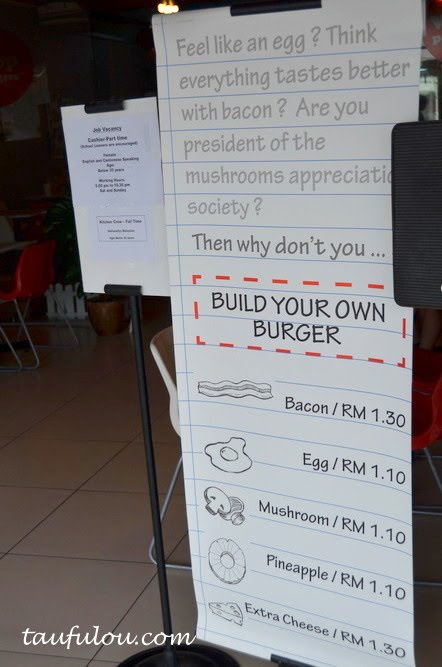 Feel like an egg? Think
everything tastes better
with bacon? Are you
president of the
mushrooms appreciatio
society?
Then why don't you ...
BUILD YOUR OWN
BURGER
Bacon / RM 1.30
Egg / RM 1.10
Mushroom / RM 1.10
Pineapple / RM 1.10
Extra Cheese / RM 1.30
Job Vacancy
Cashier-Part time
(School Leavers are encouraged)
Female
English and Cantonese Speaking
Age:
Below 30 years
Working Hours
Sat and Sunday
Kitchen Crew - Full Time
taufulou.com